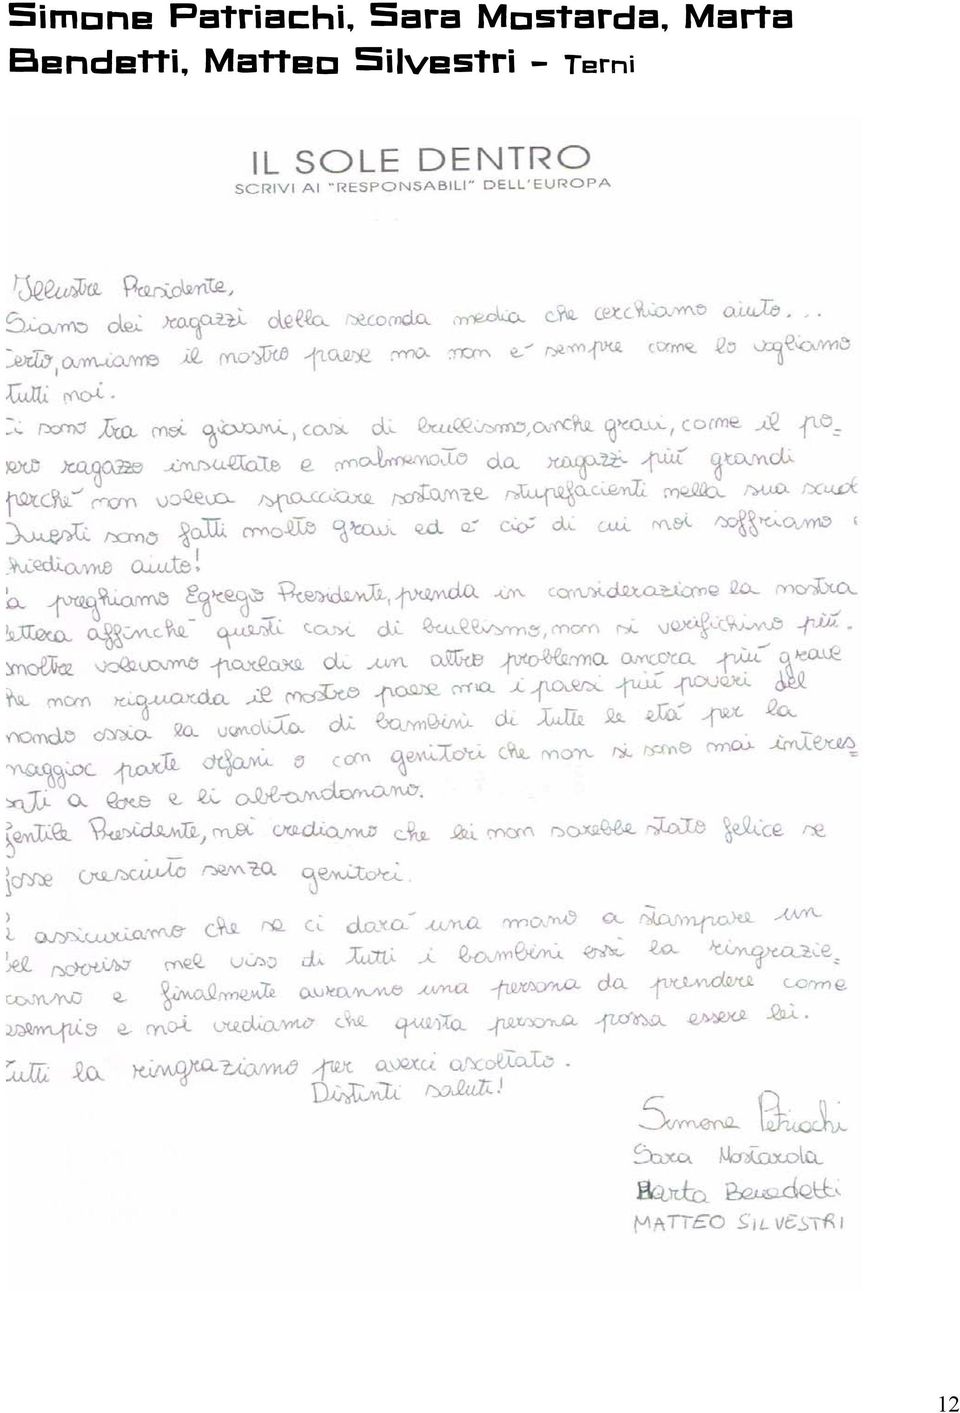 Simone Patriachi, Sara Mostarda, Marta
Bendetti, Matteo Silvestri - Terni
IL SOLE DENTRO
SCRIVI AI "RESPONSABILI" DELL'EUROPA
Illustre Presidente,
Siamo dei ragazzi della seconda media che cerchiamo aiuto...
erto, amiamo il nostro paese ma non e' sempre come lo vogliamo
tutti noi.
Ci sono tra noi giovani, casi di brullismo, anche gravi, come il po=
vero ragazzo insultato e malmenato da ragazzi più grandi
perche' non voleva spacciare sostanze stupefacienti nella sua scuol
Questi sono fatti molto gravi ed e' cio' di cui noi soffriamo e
hiediamo aiuto!
a preghiamo Egregio Presidente, prenda in considerazione la nostra
lettera affinche' questi casi di brullismo, non si verifichino più.
Inoltre volevamo parlare di un altro problema ancora più grave
he non riguarda il nostro paese ma i paesi più poveri del
mondo ossia la vendita di bambini di tutte le età per la
maggior parte orfani o con genitori che non si sono mai interes=
sati a loro e li abbandonano.
Gentile Presidente, noi crediamo che lei non sarebbe stato felice se
fosse cresciuto senza genitori.
i assicuriamo che se ci darà una mano a stampare un
bel sorriso nel viso di tutti i bambini essi la ringrazie=
ranno e finalmente avranno una persona da prendere come
esempio e noi crediamo che questa persona possa essere lei.
Tutti la ringraziamo per averci ascoltato.
Distinti saluti!
Simone Petriachi
Sara Mostarda
Marta Benedetti
MATTEO SILVESTRI
12